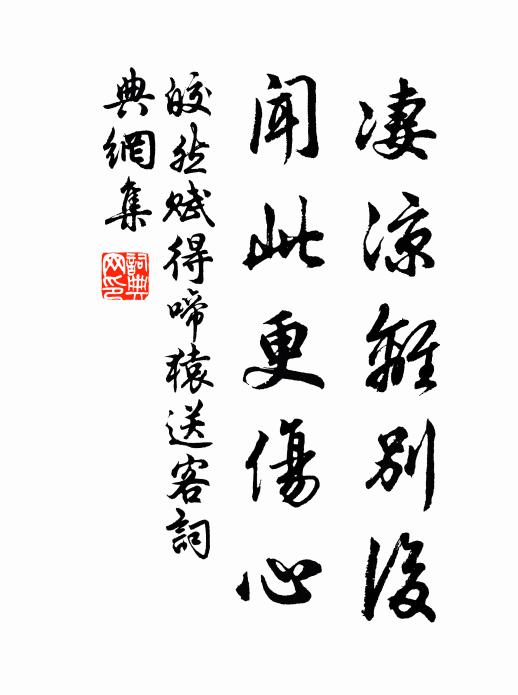 凄涼離別後
聞此更傷心
皎然賦得啼猿送客詞
典網集
詞典网印